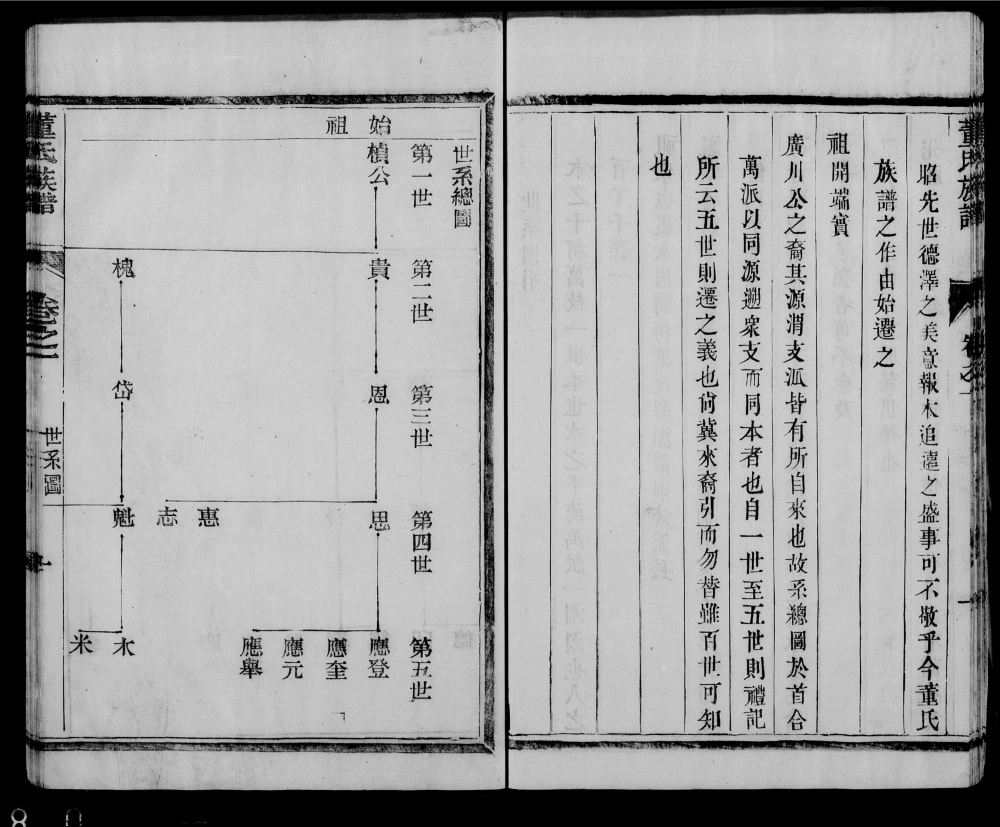 董氏族譜
卷之一
一
昭先世德澤之美意報本追遠之盛事可不敬乎今董氏
族譜之作由始遷之
祖開端實
廣川公之裔其源渭支派皆有所自來也故系總圖於首合
萬派以同源遡衆支而同本者也自一世至五世則禮記
所云五世則遷之義也尙冀來裔引而勿替雖百世可知
也
世系總圖
第一世
第二世
第三世
第四世
第五世
始祖
楨公
貴
槐
恩
岱
思
惠
志
魁
應登
應奎
應元
應舉
木
米
董氏族譜
卷之一
世系圖